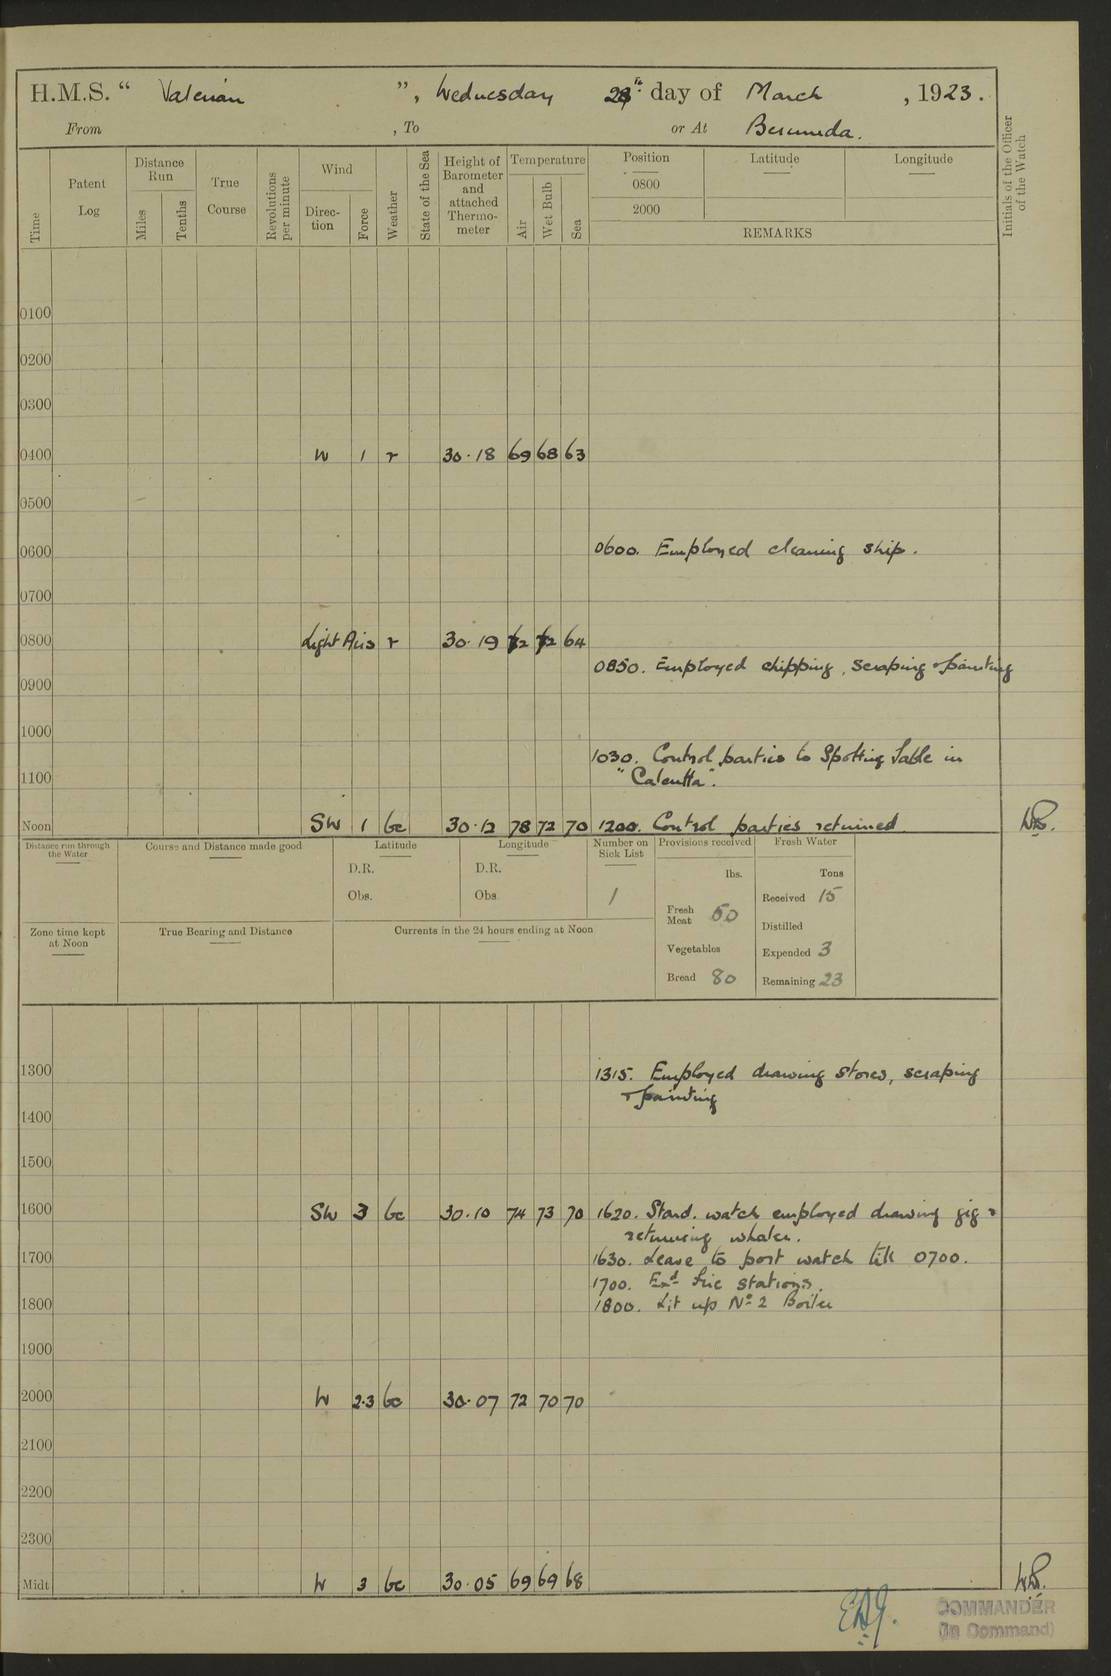 H.M.S. “ Valerian ”, Wednesday 28th day of March , 1923.
From , To or At Bermuda.
Time
Patent Log
Distance Run
Miles
Tenths
True Course
Revolutions per minute
Wind
Direc-tion
Force
Weather
State of the Sea
Height of Barometer and attached Thermo-meter
Temperature
Air
Wet Bulb
Sea
Position Latitude Longitude
0800
2000
REMARKS
Initials of the Officer of the Watch
0100
0200
0300
0400 W 1 r 30.18 69 68 63
0500
0600 0600. Employed cleaning ship.
0700
0800 Light Airs r 30.19 72 72 64
0850. Employed chipping, scraping & painting
0900
1000
1030. Control parties to Spotting Table in
1100 "Calcutta".
Noon SW 1 bc 30.12 78 72 70 1200. Control parties returned
Distance run through the Water
Course and Distance made good
Latitude
D.R.
Obs.
Longitude
D.R.
Obs
Number on Sick List
1
Provisions received
lbs.
Fresh Meat 50
Vegetables
Bread 80
Fresh Water
Tons
Received 15
Distilled
Expended 3
Remaining 23
Zone time kept at Noon
True Bearing and Distance
Currents in the 24 hours ending at Noon
1300 1315. Employed drawing stores, scraping
& painting
1400
1500
1600 SW 3 bc 30.10 74 73 70 1620. Stand. watch employed drawing gig &
returning whaler.
1630. Leave to port watch till 0700.
1700
1700. Exd fire stations.
1800 1800. Lit up No 2 Boiler
1900
2000 W 2.3 bc 30.07 72 70 70
2100
2200
2300
Midt W 3 bc 30.05 69 69 68
COMMANDER
(In Command)